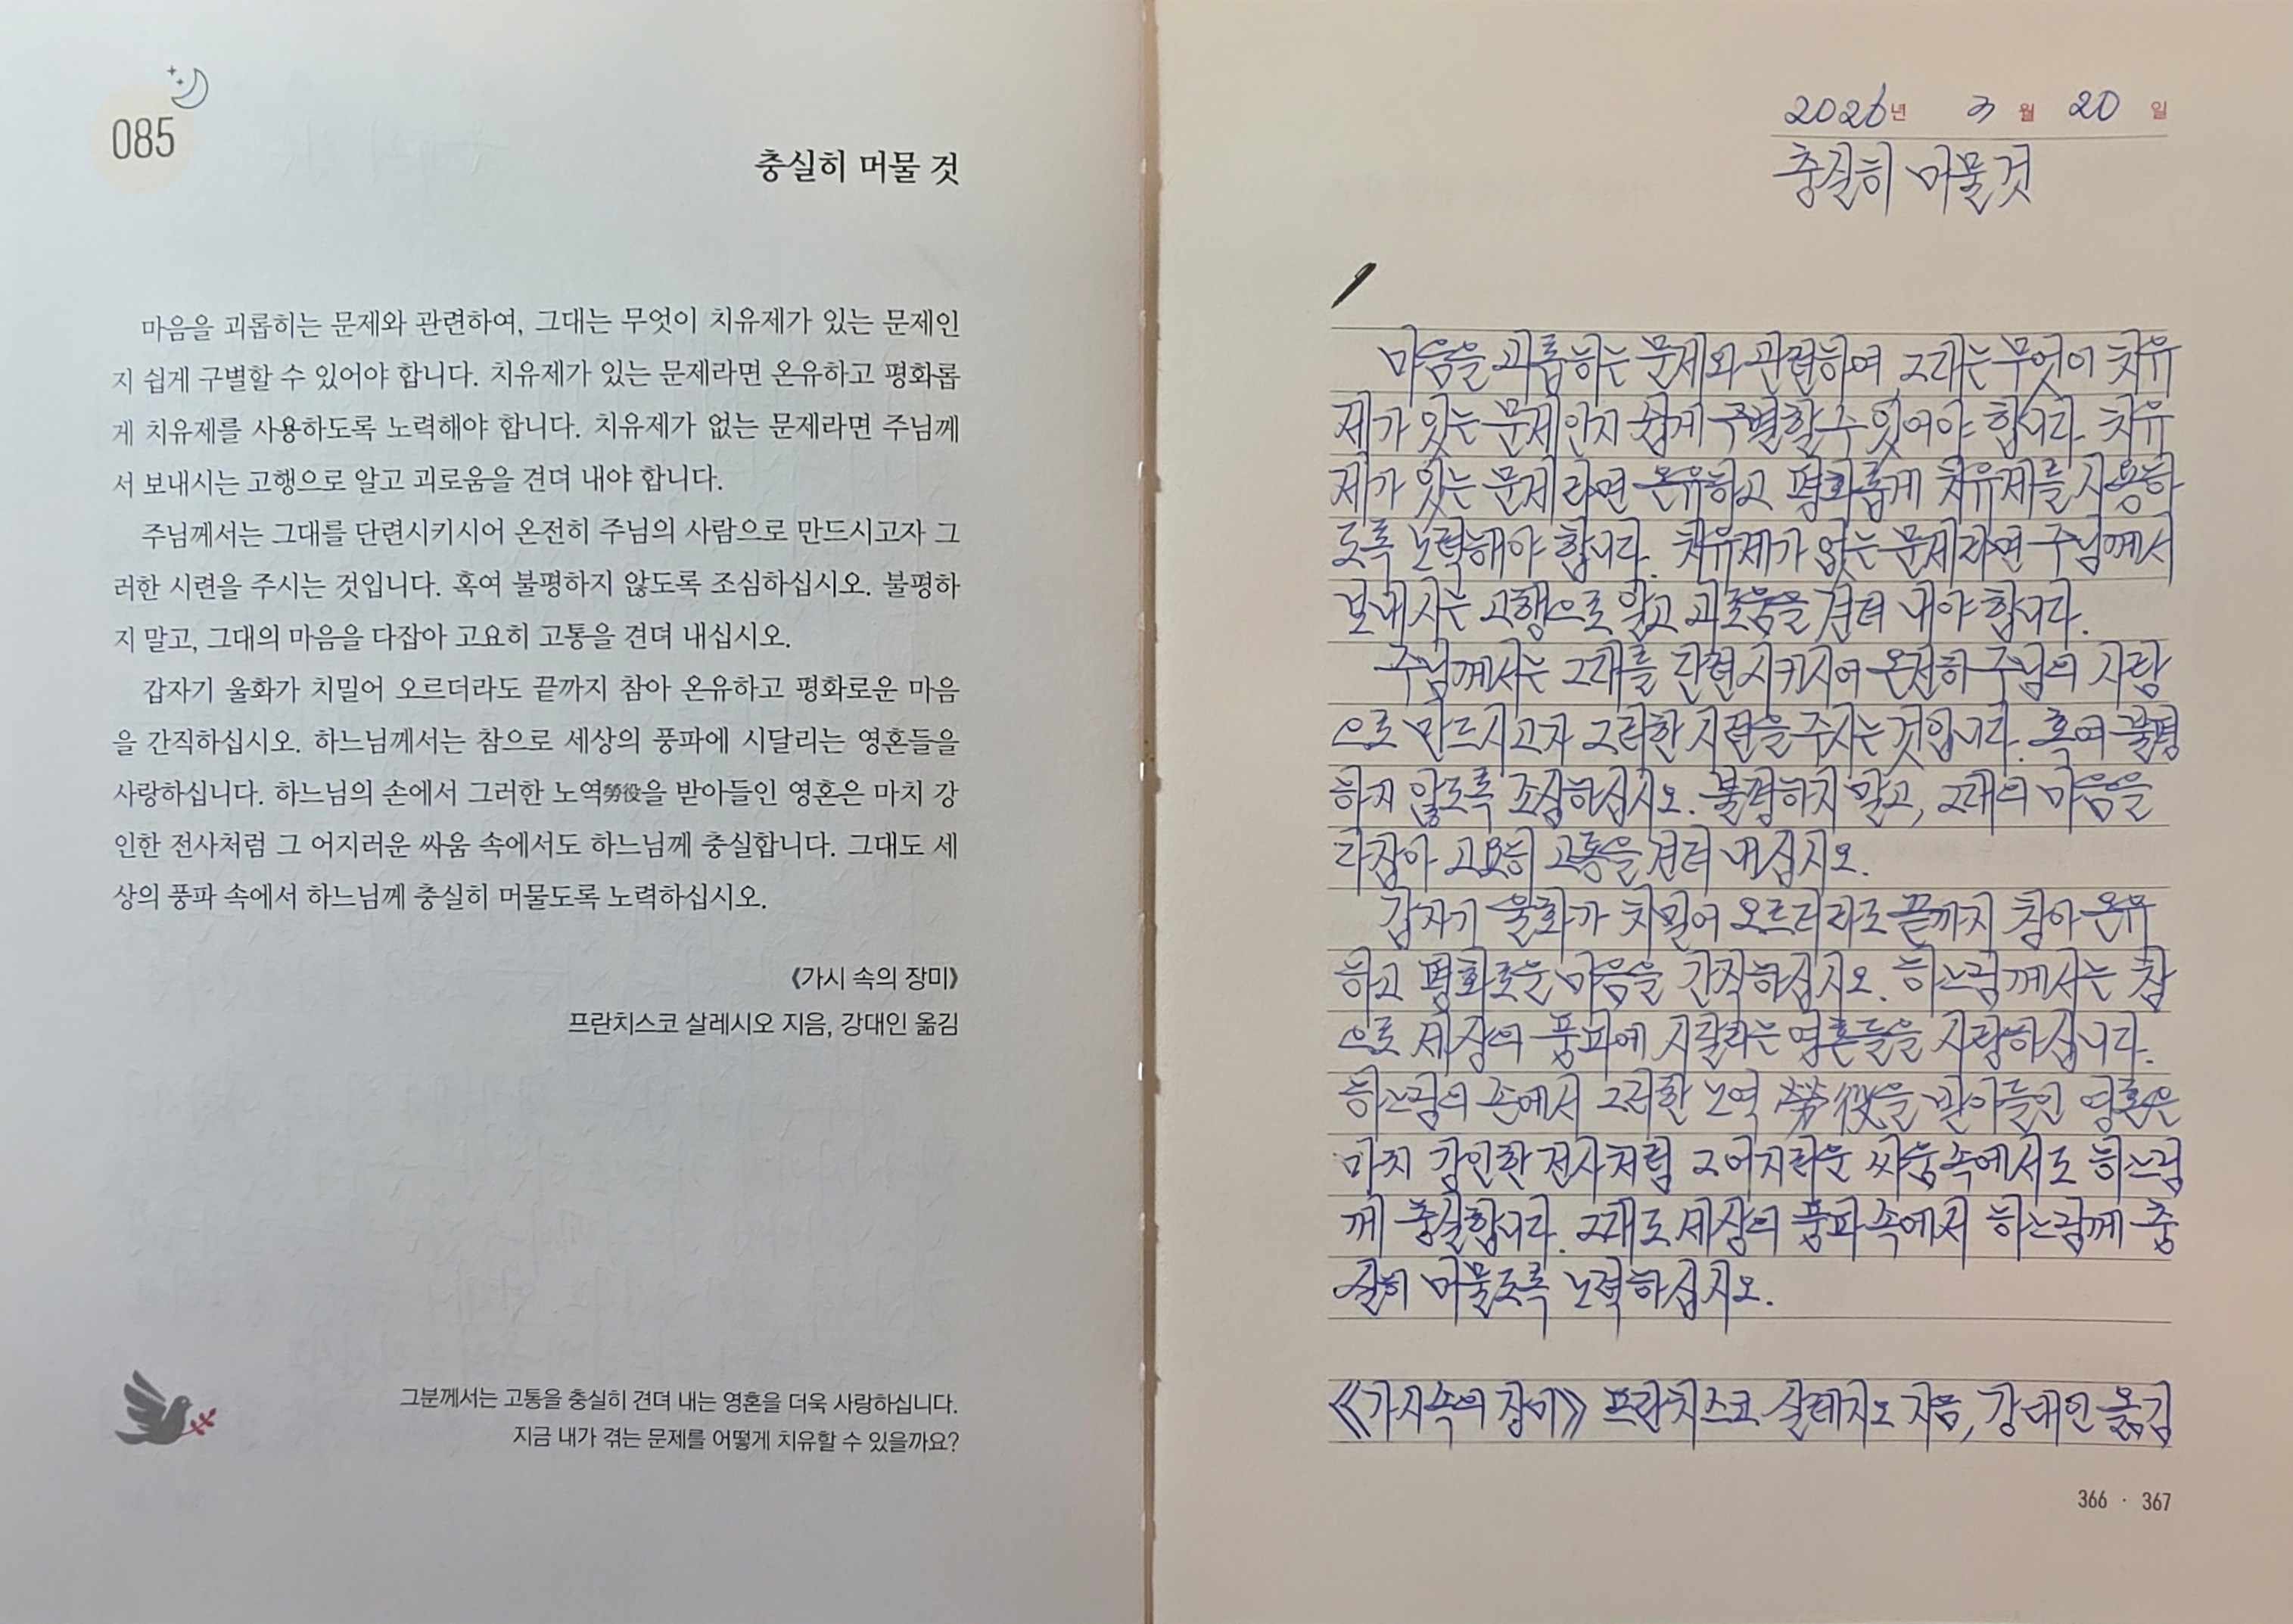 085
충실히 머물 것
마음을 괴롭히는 문제와 관련하여, 그대는 무엇이 치유제가 있는 문제인
지 쉽게 구별할 수 있어야 합니다. 치유제가 있는 문제라면 온유하고 평화롭
게 치유제를 사용하도록 노력해야 합니다. 치유제가 없는 문제라면 주님께
서 보내시는 고행으로 알고 괴로움을 견뎌 내야 합니다.
주님께서는 그대를 단련시키시어 온전히 주님의 사람으로 만드시고자 그
러한 시련을 주시는 것입니다. 혹여 불평하지 않도록 조심하십시오. 불평하
지 말고, 그대의 마음을 다잡아 고요히 고통을 견뎌 내십시오.
갑자기 울화가 치밀어 오르더라도 끝까지 참아 온유하고 평화로운 마음
을 간직하십시오. 하느님께서는 참으로 세상의 풍파에 시달리는 영혼들을
사랑하십니다. 하느님의 손에서 그러한 노역勞役을 받아들인 영혼은 마치 강
인한 전사처럼 그 어지러운 싸움 속에서도 하느님께 충실합니다. 그대도 세
상의 풍파 속에서 하느님께 충실히 머물도록 노력하십시오.
《가시 속의 장미》
프란치스코 살레시오 지음, 강대인 옮김
그분께서는 고통을 충실히 견뎌 내는 영혼을 더욱 사랑하십니다.
지금 내가 겪는 문제를 어떻게 치유할 수 있을까요?
2026년 3월 20일
충실히 머물것
마음을 괴롭히는 문제와 관련하여, 그대는 무엇이 치유
제가 있는 문제인지 쉽게 구별할 수 있어야 합니다. 치유
제가 있는 문제라면 온유하고 평화롭게 치유제를 사용하
도록 노력해야 합니다. 치유제가 없는 문제라면 주님께서
보내시는 고행으로 알고 괴로움을 견뎌 내야 합니다.
주님께서는 그대를 단련시키시어 온전히 주님의 사람
으로 만드시고자 그러한 시련을 주시는 것입니다. 혹여 불평
하지 않도록 조심하십시오. 불평하지 말고, 그대의 마음을
다잡아 고요히 고통을 견뎌 내십시오.
갑자기 울화가 치밀어 오르더라도 끝까지 참아 온유
하고 평화로운 마음을 간직하십시오. 하느님께서는 참
으로 세상의 풍파에 시달리는 영혼들을 사랑하십니다.
하느님의 손에서 그러한 노역 勞役을 받아들인 영혼은
마치 강인한 전사처럼 그 어지러운 싸움 속에서도 하느님
께 충실합니다. 그대도 세상의 풍파 속에서 하느님께 충
실히 머물도록 노력하십시오.
《가시 속의 장미》 프란치스코 살레시오 지음, 강대인 옮김
366 · 367